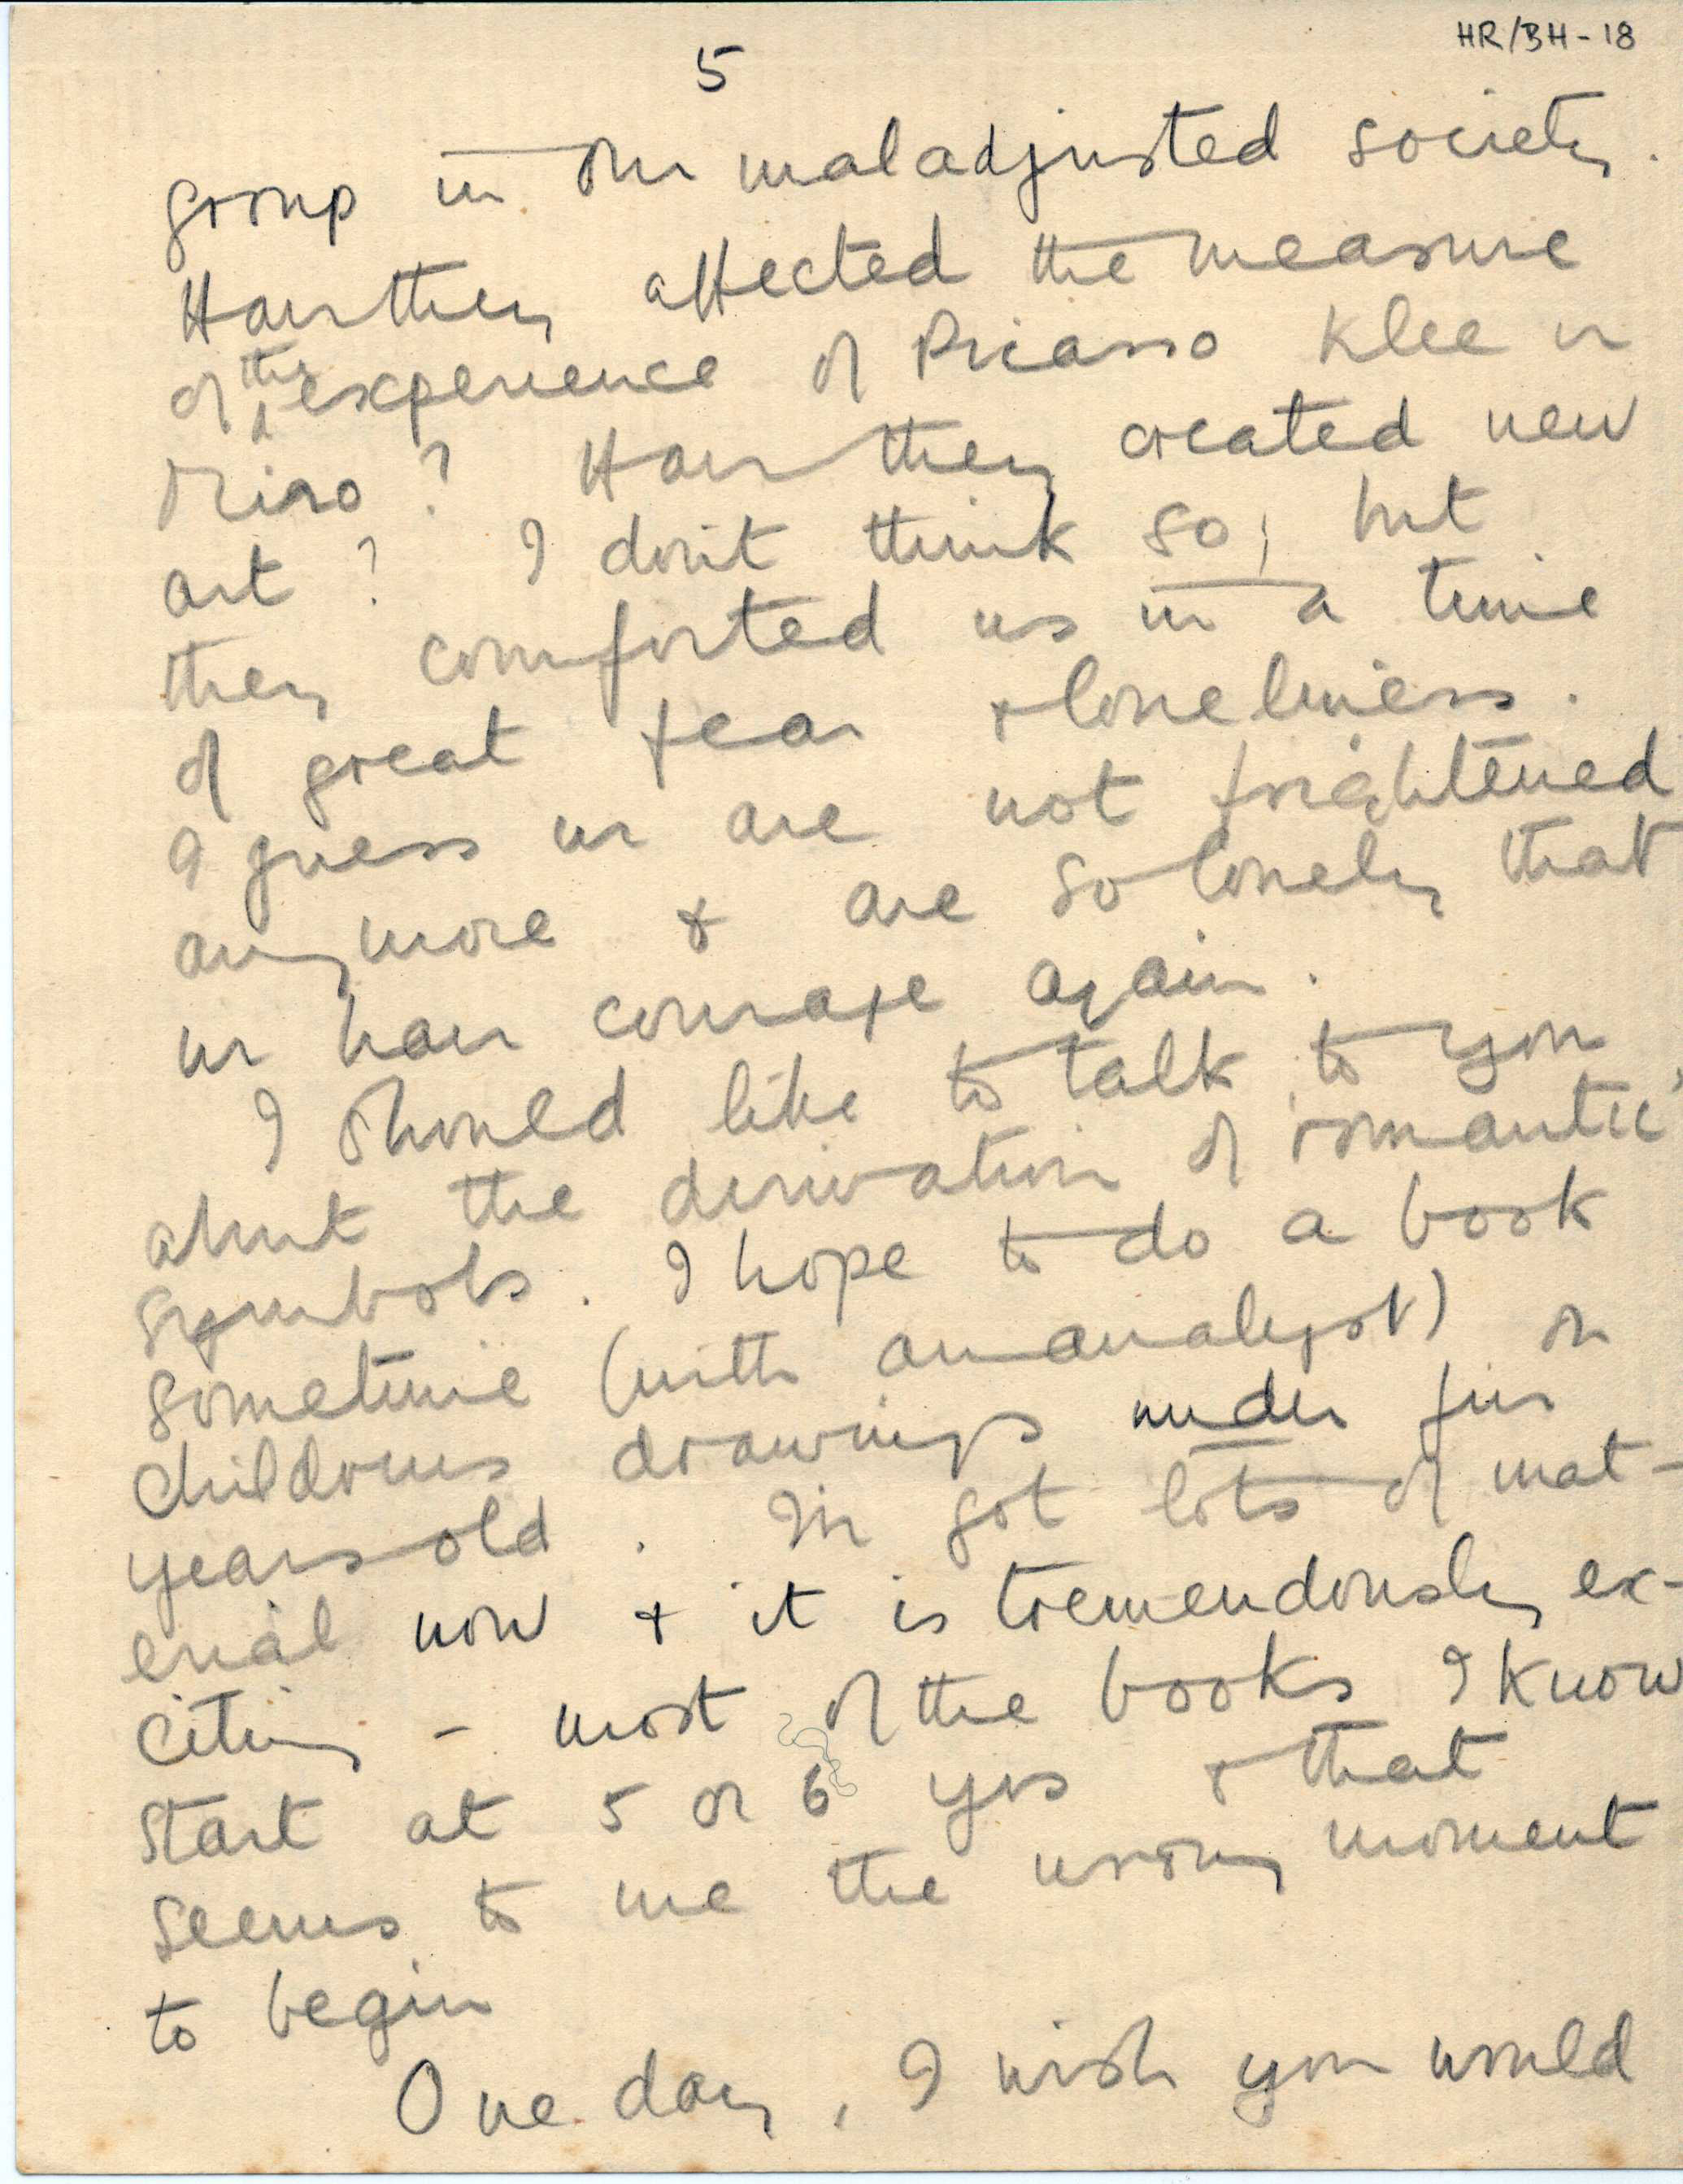 HR/BH-18
5
group in our maladjusted society.
Have they affected the measure
of the experience of Picasso Klee or
Miro? Have they created new
art? I don't think so, but
they comforted us in a time
of great fear & loneliness.
I guess we are not frightened
anymore & are so lonely that
we have courage again.
I should like to talk to you,
about the derivation of 'romantic'
symbols. I hope to do a book
sometime (with an analyst) on
childrens drawings under five
years old. I've got lots of mat-
erial now & it is tremendously ex-
citing - most of the books I know
start at 5 or 6 yrs & that
seems to me the wrong moment
to begin
One day, I wish you would